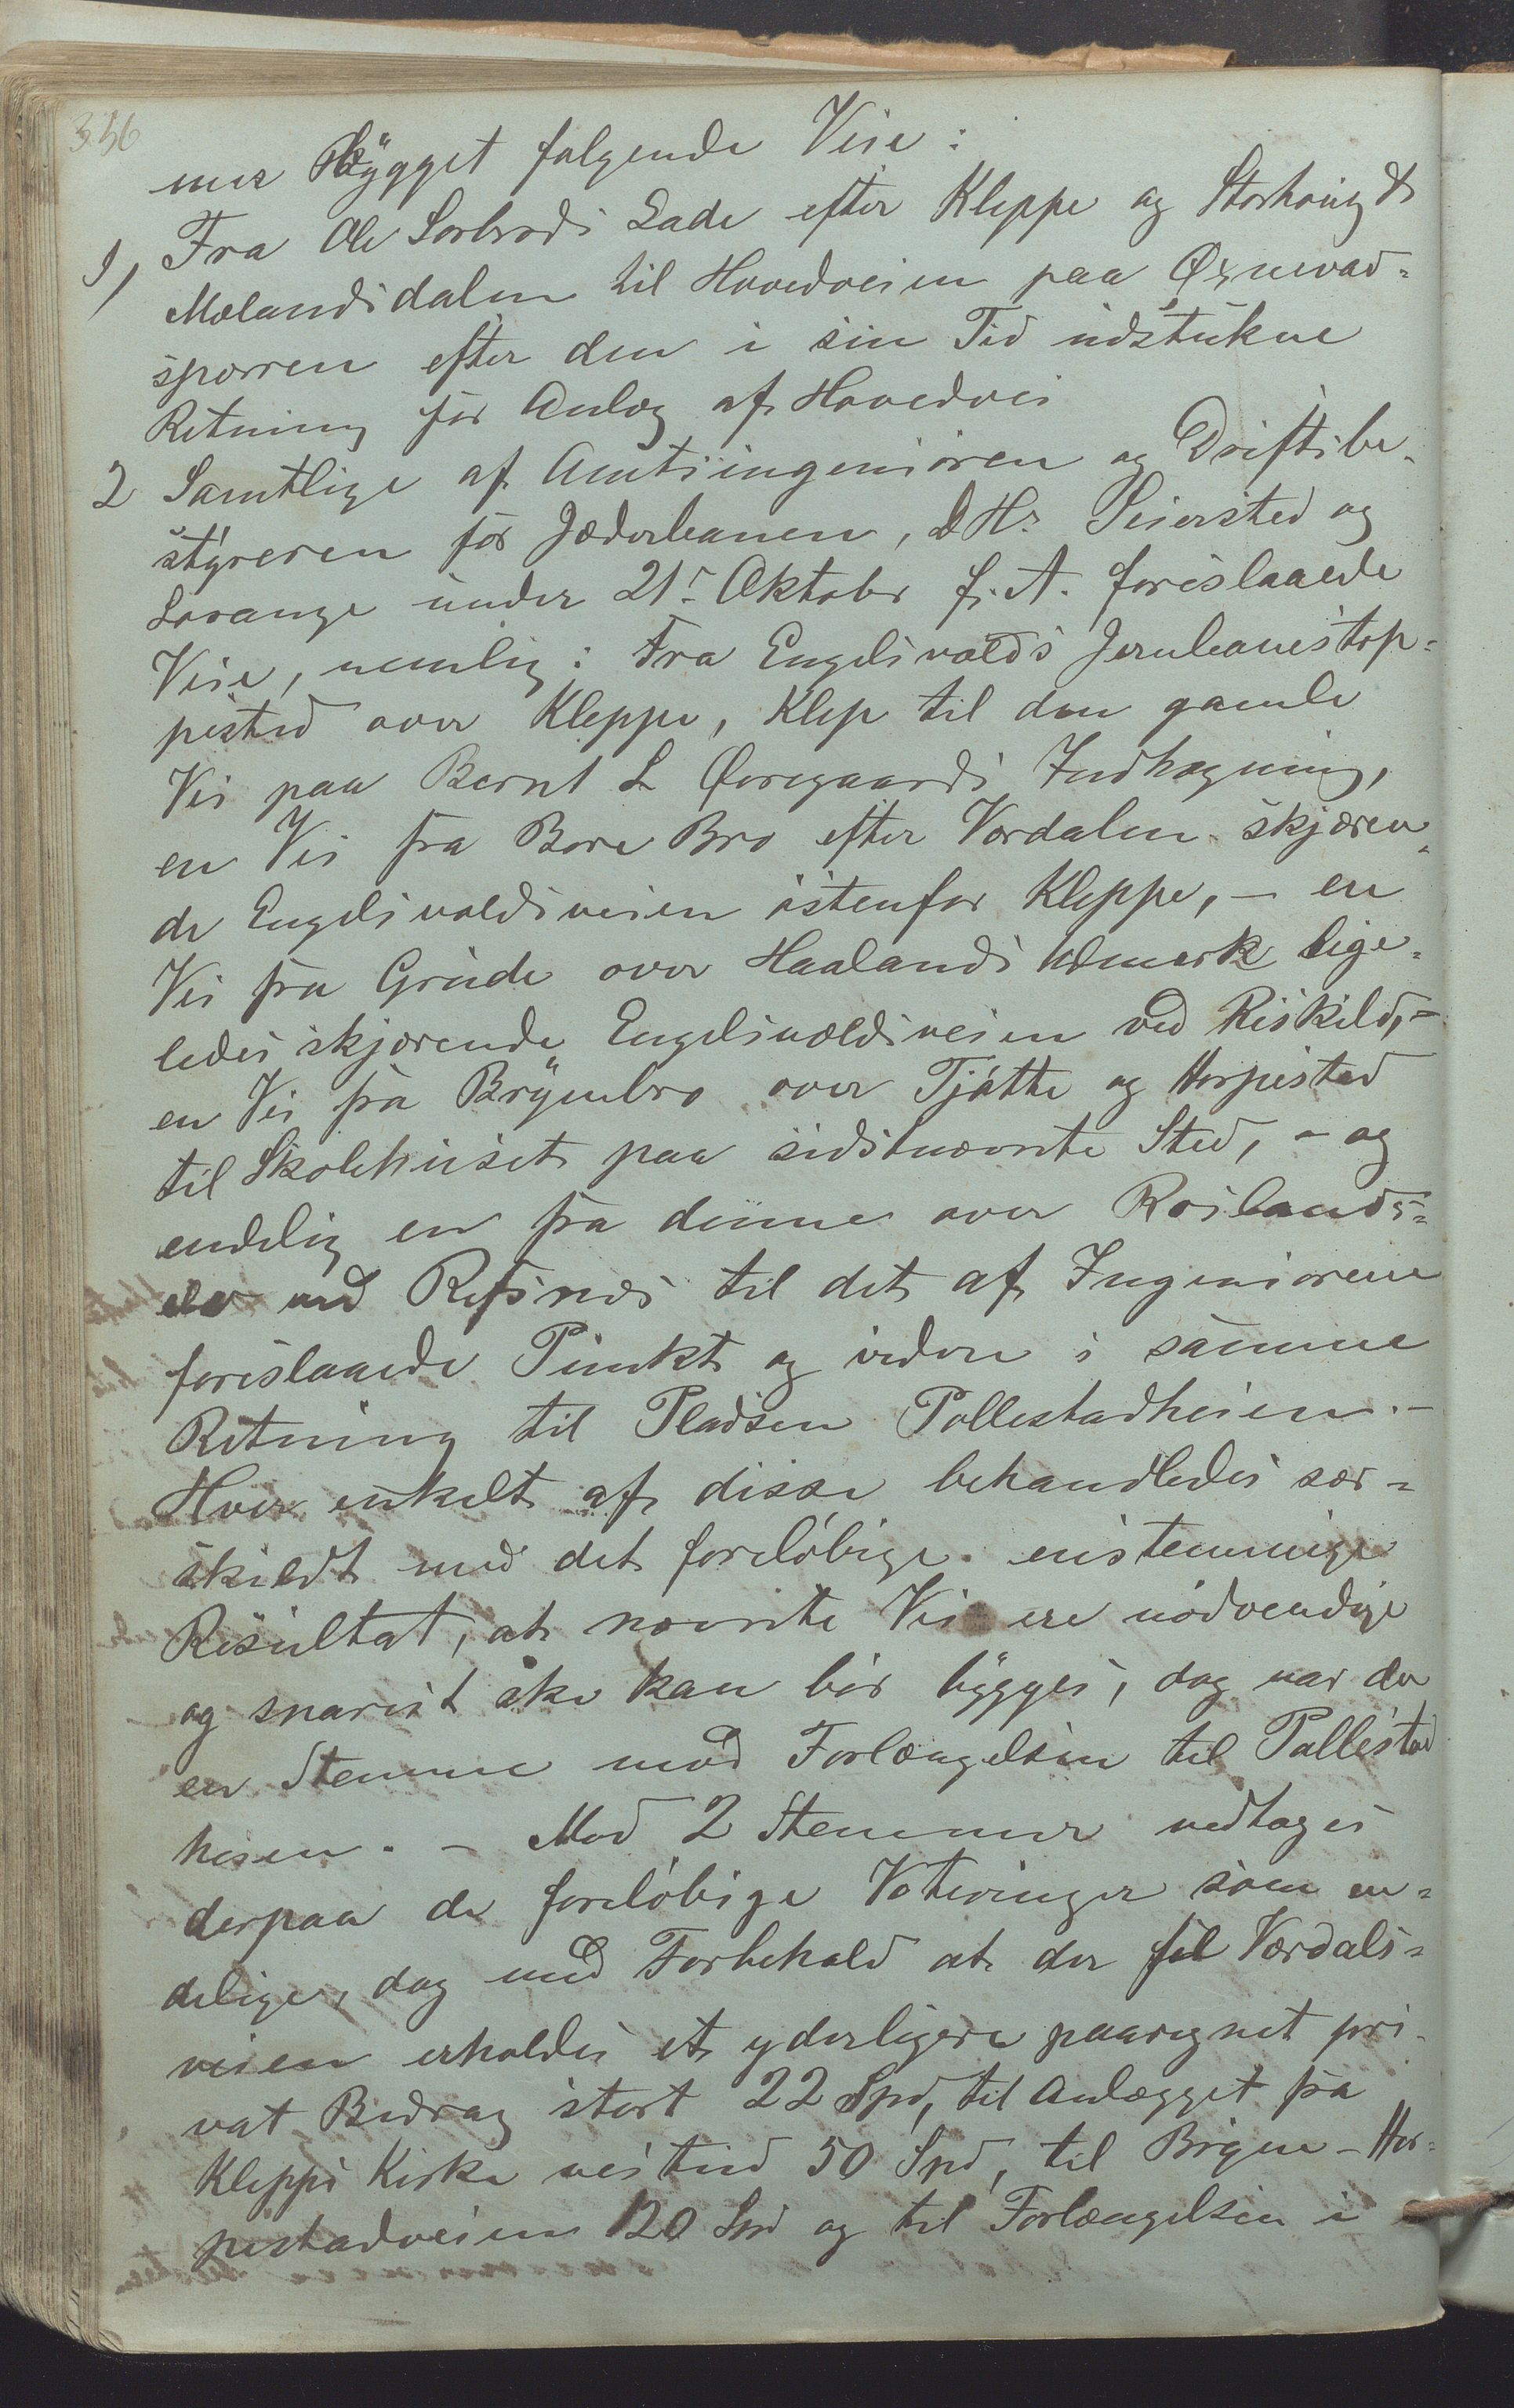 356
mer Bygget følgende Veie:
1, Fra Ole Sørbrøds Lade efter Kleppe og Storhaug &
Mælandsdalen til Hovedveien paa Øxnevad-
sporren efter den i sin Tid udstukne
Retning før Anlæg af Hovedvei
2 Samtlige af Amtsingeniøren og Driftsbe-
styreren for Jæderbanen, d Hr. Seiersted og
Lorange under 21r Oktober f. A. foreslaaede
Veie, nemlig: Fra Engelsvolds Jernbanestop-
pested over Kleppe, Klep til den gamle
Vei paa Bernt L Øvregaards Indhegning,
en Vei fra Bore Bro efter Vordalen skjæren-
de Engelsvoldsveien østenfor Kleppe, – en
Vei fra Grude over Haalands Udmark lige-
ledes skjærende Engelsvoldsveien ved Riskild, –
en Vei fra Brynebro over Tjøtte og Horpestad
til Skolehuset paa sidstnævnte Sted, – og
endelig en fra denne over Roslands-
elv ved Refsnes til det af Ingeniørene
foreslaaede Punkt og videre i samme
Retning til Pladsen Pollestadheien. –
Hver enkelt af disse behandledes sær-
skildt med det foreløbige enstemmige
Resultat, at nævnte Vei ere nødvendige
og snarest ske kan bør bygges, dog var der
en Stemme mod Forlængelsen til Pollestad
heien. – Mod 2 Stemmer vedtages
derpaa de foreløbige Voteringer som en-
delige, dog med Forbehold at der til Vordals-
veien erholdes et yderligere paaregnet pri-
vat Bidrag stort 22 Spd, til Anlægget fra
Kleppe Kirke vestud 50 Spd, til Bryne – Hor-
pestadveien 120 Spd og til Forlængelsen i